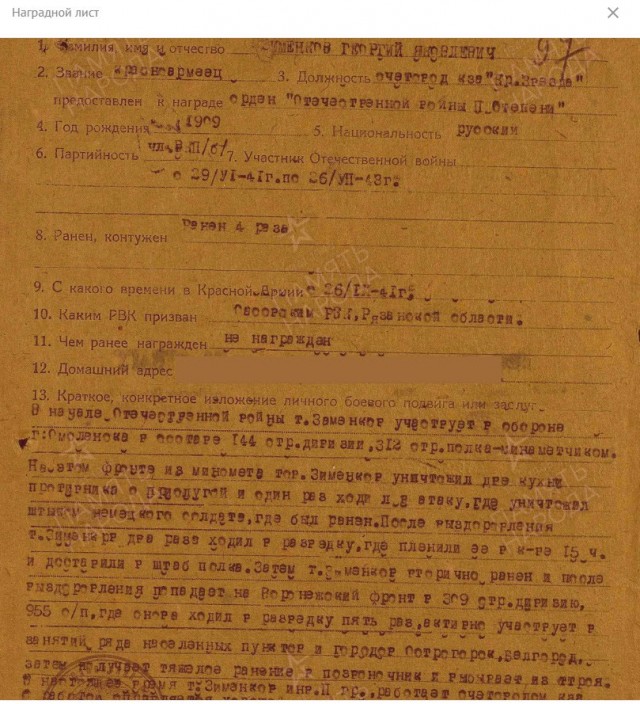 Наградной лист
1. Фамилия, имя и отчество ЗИМЕНКОВ ГЕОРГИЙ ЯКОВЛЕВИЧ 97
2. Звание красноармеец 3. Должность счетовод клз "Кр.Звезда"
предоставлен к награде орден "Отечественной войны П Степени"
4. Год рождения 1909 5. Национальность русский
6. Партийность чл.В П/б/ 7. Участник Отечественной войны
с 29/УІ-4Іг.по 26/УП-43г.
8. Ранен, контужен Ранен 4 раза
9. С какого времени в Красной Армии с 26/ІХ-4Іг.
10. Каким РВК призван РВК, Рязанской области.
11. Чем ранее награжден не награждан
12. Домашний адрес
13. Краткое, конкретное изложение личного боевого подвига или заслуг
В начале Отечественной войны т.Заменков участвует в обороне
г.Смоленска в составе 144 стр.дивизии,312 стр.полка-минаметчиком.
На этом фронте из миномета тов.Зименков уничтожил две кухни
противника с прислугой и один раз ходил в атаку,где уничтожал
штыком немецкого солдата,где был ранен.После выздоровления
т.Зименков два раза ходил в разведку,где пленили ее в к-ве 15 ч.
и доставили в штаб полка.Затем т.Заменков вторично ранен и после
выздоровления попадает на Воронежский фронт в 309 стр.дивизию,
955 с/п,где снова ходил в разведку пять раз,активно участвует в
занятии ряда населенных пунктов и городов Острогорск,Белгород,
затем получает тяжелое ранение в позвоночник и выбывает из строя.
В настоящее время т.Зименков инв.П гр.,работает счетоводом клз
с работой
ПАМЯТЬ НАРОДА